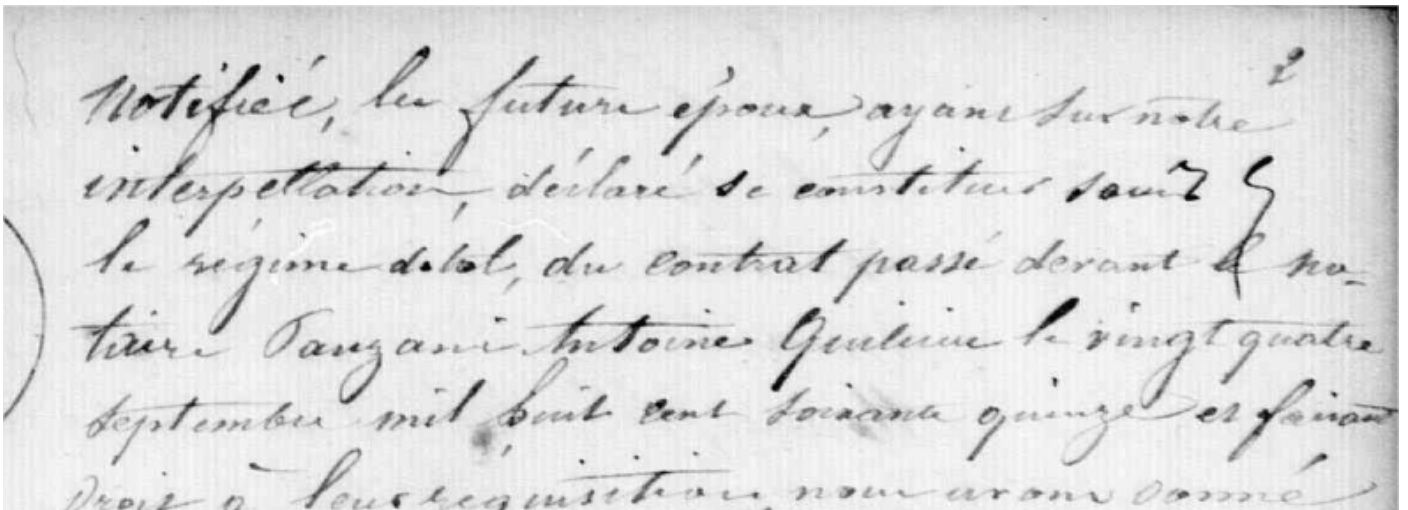 2
Notifiée, les futurs époux, ayant sur notre
interpellation, déclaré se constituer sous
le régime dotal, du contrat passé devant le no-
taire Antoine le vingt quatre
septembre mil huit cent soixante quinze et faisant
Droit à leur requisition, nous avons donné